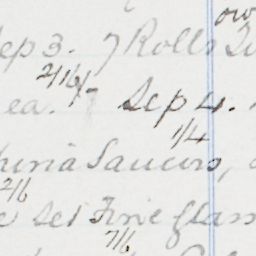 ow
Sep 3. 7 Rolls
2/16/7
ea. Sep 4.
1/4
China Saucers,
2/6
Set Fine Glass
7/6